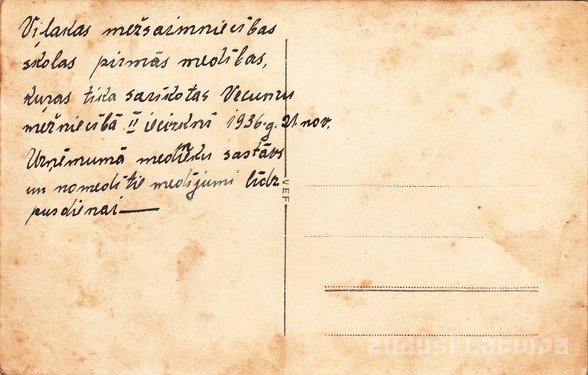 Viļakas mežsaimniecības
skolas pirmās medības,
kuras tika sarīkotas Vecumu
mežniecībā II iecirknī 1936.g. 21 nov.
Uzņēmumā mednieku sastāvs
un nomedītie medījumi līdz
pusdienai—
VEF
zudusi latvija